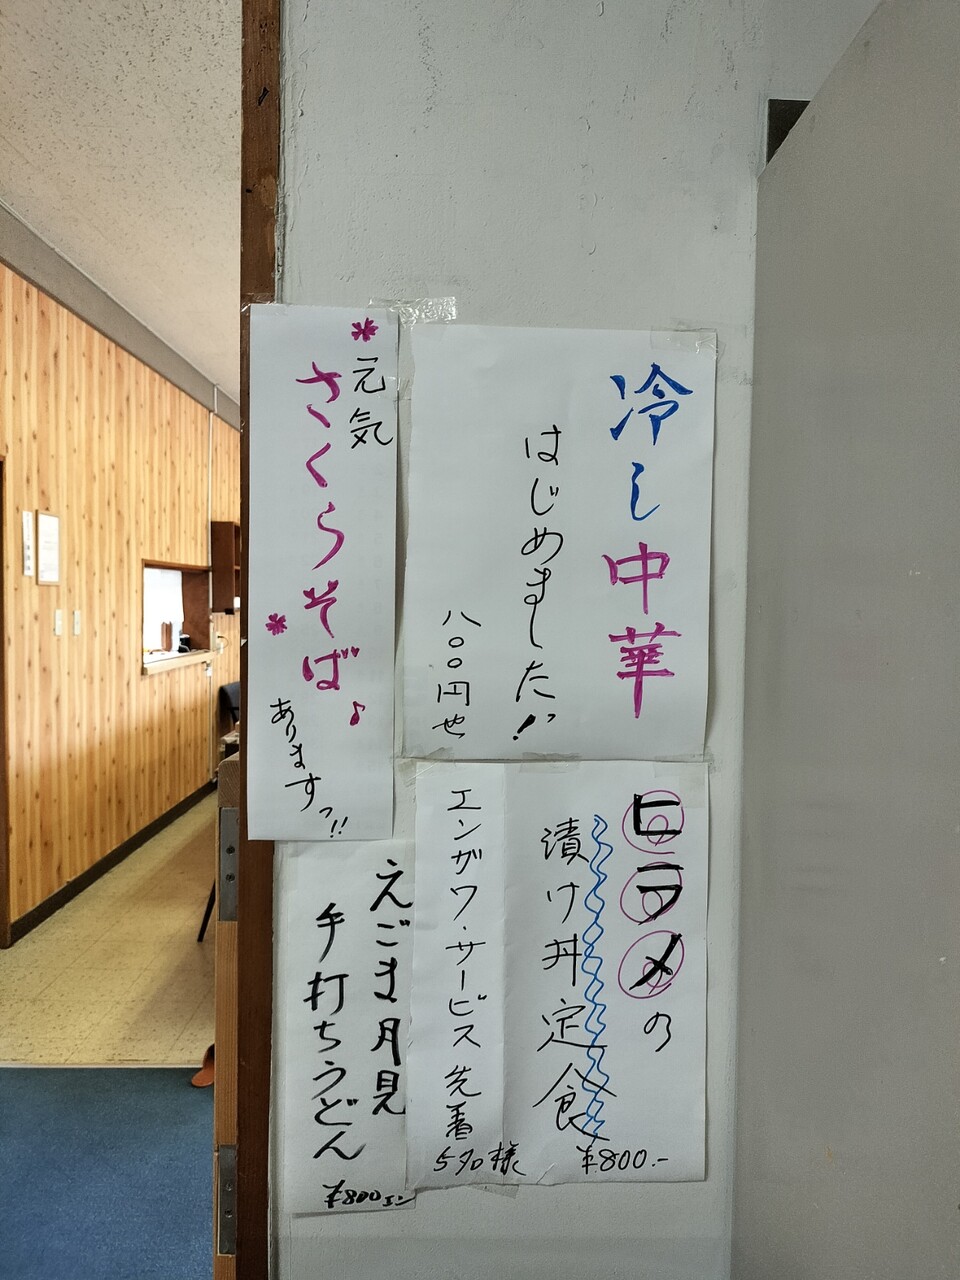 冷し中華
はじめました!!
八〇〇円也
元気
さくらそば♪
ありますっ!!
ヒラメの
漬け丼定食
¥800.-
エンガワ・サービス 先着
5名様
えごま月見
手打ちうどん
¥800エン